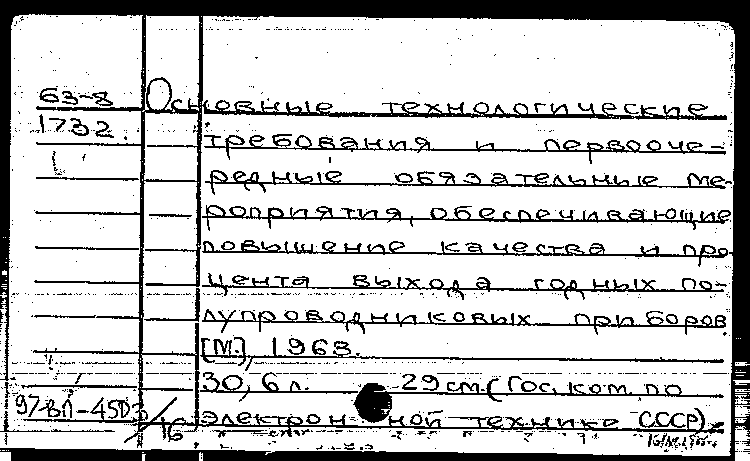 63-8 Основные технологические
1732. требования и первооче-
редные обязательные ме-
роприятия, обеспечивающие
повышение качества и про-
цента выхода годных по-
лупроводниковых приборов
[М.], 1963.
30, 6 л. 29 см (Гос. ком. по
97-ВП-4503/16 электрон-ной технике СССР).